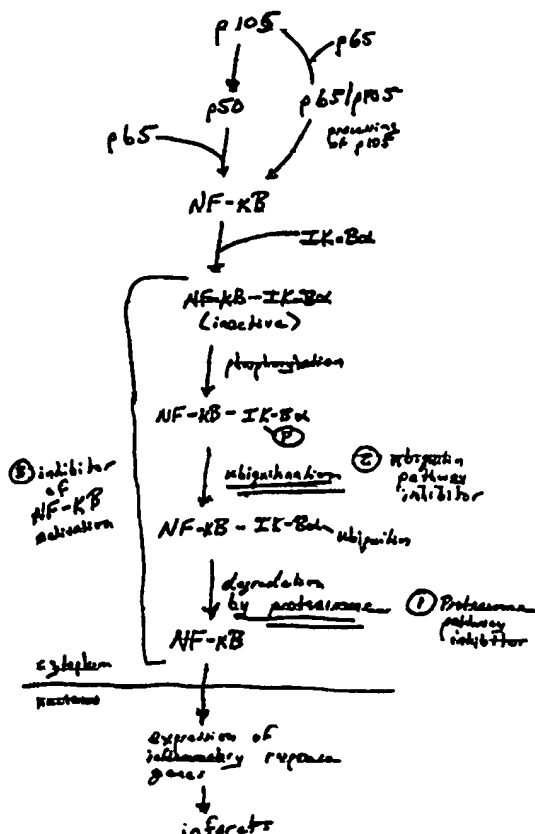 p105
p65
p50
p65/p105
processing
of p105
p65
NF-KB
IK-Bα
NF-KB-IK-Bα
(inactive)
phosphorylation
NF-KB-IK-Bα
P
ubiquitination
② ubiquitin
pathway
inhibitor
③ inhibitor
of
NF-KB
activation
NF-KB-IK-Bα-ubiquitin
degradation
by proteasome
① Proteasome
pathway
inhibitor
NF-KB
cytoplasm
nucleus
expression of
inflammatory response
genes
infarcts